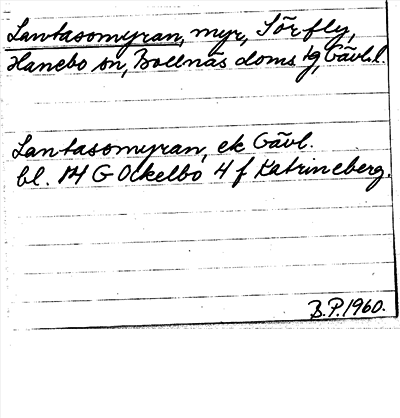 Lantasomyran, myr, Sör fly,
Hanebo sn, Bollnäs doms tg, Gävl.l.
Lantasomyran, ek Gävl.
bl. 14 G Ockelbo 4 f Katrineberg.
B.P. 1960.